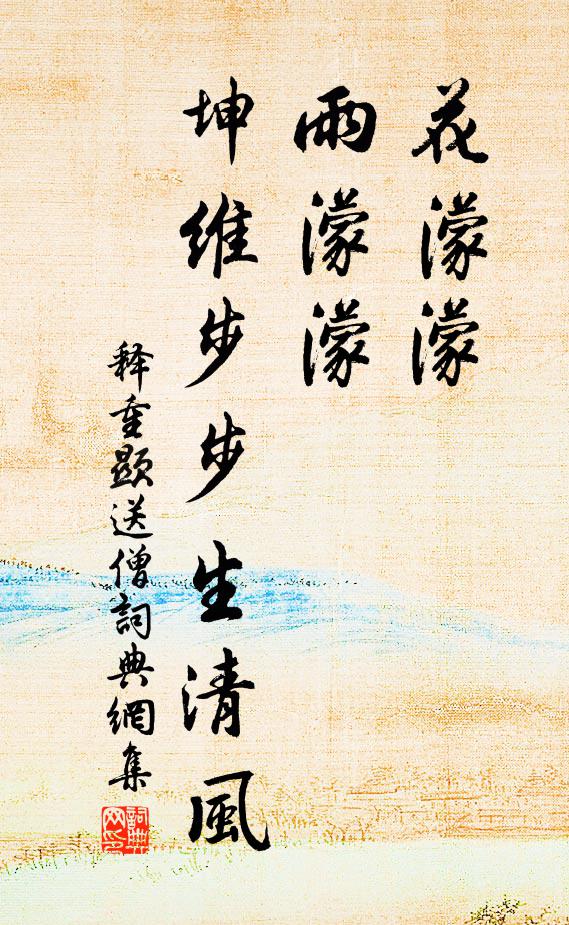 花濛濛
雨濛濛
坤維步步生清風
释重顯送僧詞典網集
詞典网印